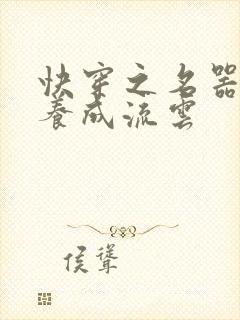 快穿之名器
养成流雲
侯聳